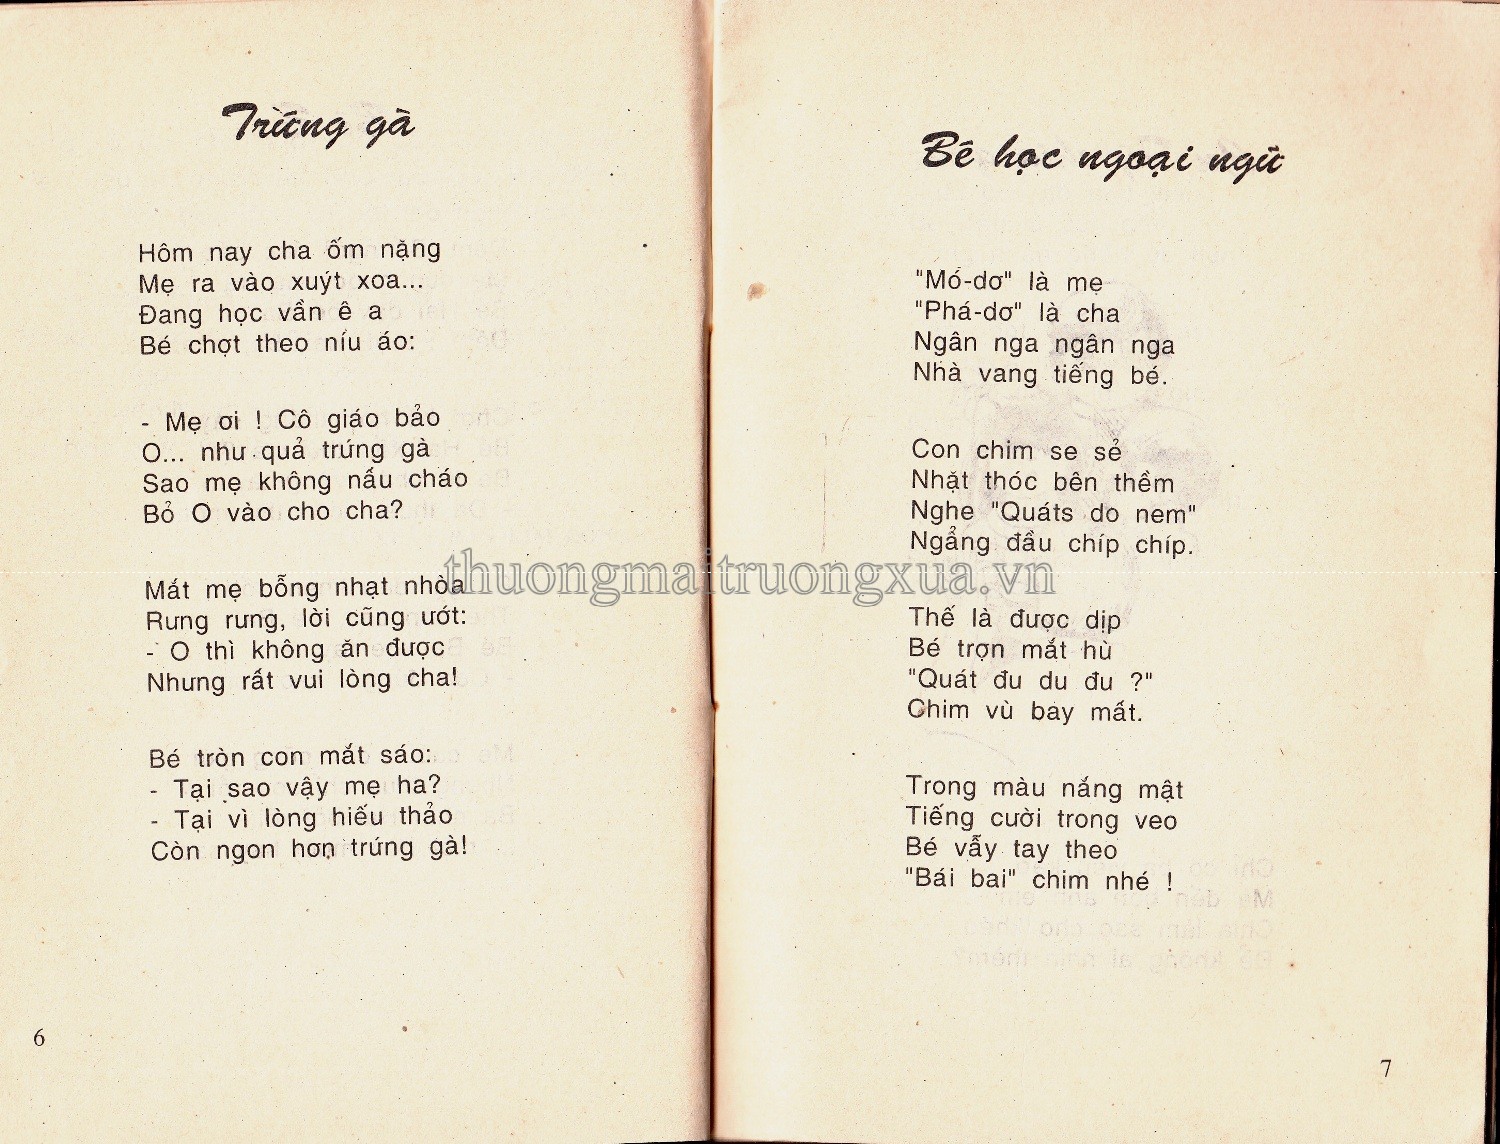 Trứng gà
Hôm nay cha ốm nặng
Mẹ ra vào xuýt xoa...
Đang học vần ê a
Bé chợt theo níu áo:
- Mẹ ơi ! Cô giáo bảo
O... như quả trứng gà
Sao mẹ không nấu cháo
Bỏ O vào cho cha?
Mắt mẹ bỗng nhạt nhòa
Rưng rưng, lời cũng ướt:
- O thì không ăn được
Nhưng rất vui lòng cha!
Bé tròn con mắt sáo:
- Tại sao vậy mẹ ha?
- Tại vì lòng hiếu thảo
Còn ngon hơn trứng gà!
6
Bé học ngoại ngữ
"Mó-dơ" là mẹ
"Phá-dơ" là cha
Ngân nga ngân nga
Nhà vang tiếng bé.
Con chim se sẻ
Nhặt thóc bên thềm
Nghe "Quáts do nem"
Ngẩng đầu chíp chíp.
Thế là được dịp
Bé trợn mắt hù
"Quát đu du đu ?"
Chim vù bay mất.
Trong màu nắng mật
Tiếng cười trong veo
Bé vẫy tay theo
"Bái bai" chim nhé !
7
thuongmaitruongxua.vn